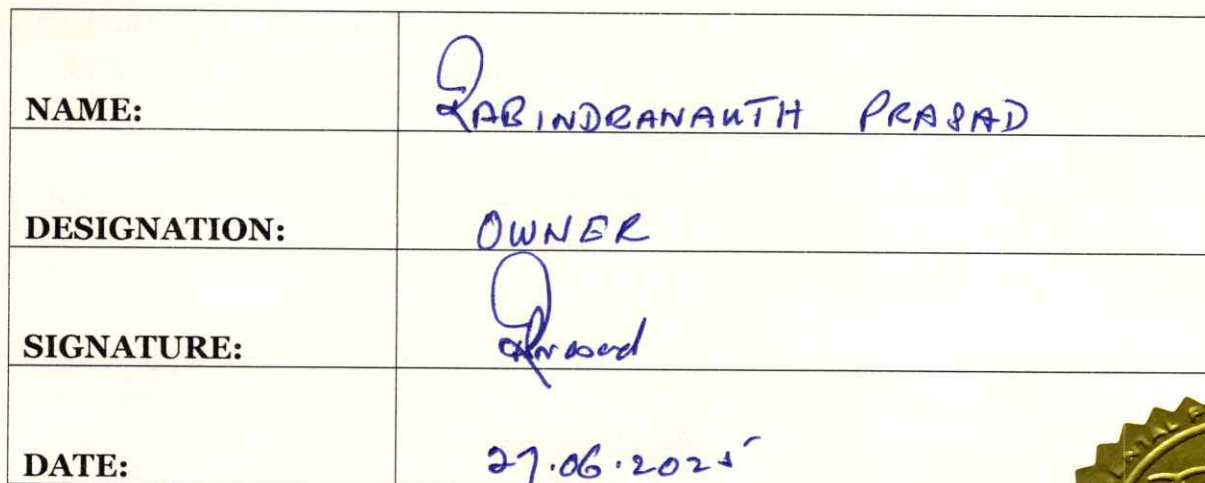 NAME: RABINDRANAUTH PRASAD
DESIGNATION: OWNER
SIGNATURE: RPrasad
DATE: 27.06.2025